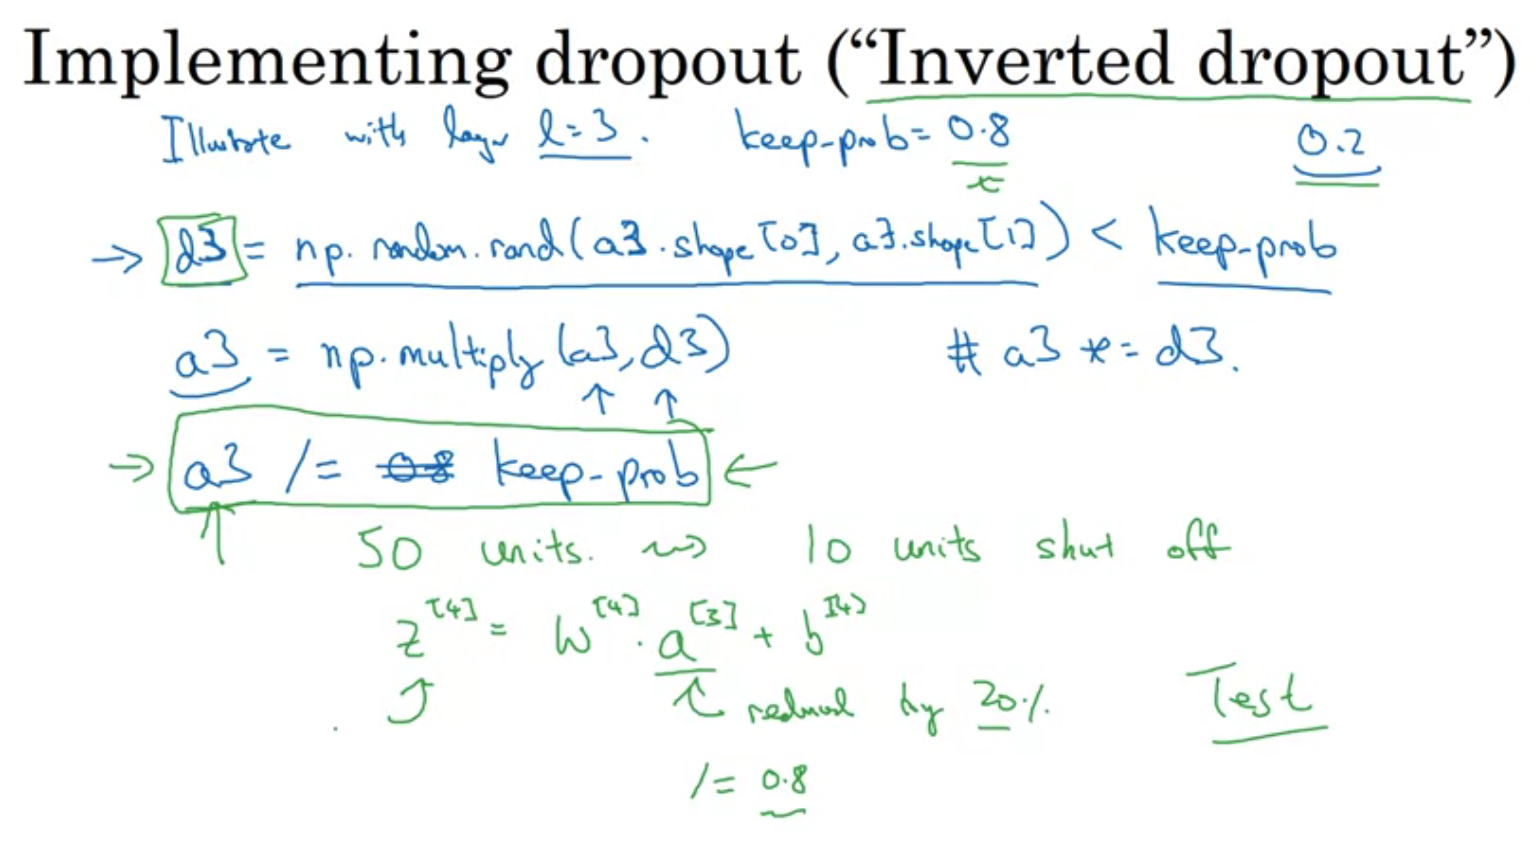 Implementing dropout (“Inverted dropout”)
Illustrate with layer l=3. keep-prob= 0.8 0.2
→ d3 = np.random.rand(a3.shape[0], a3.shape[1]) < keep-prob
a3 = np.multiply(a3,d3) # a3 *= d3.
↑ ↑
→ a3 /= 0.8 keep-prob ←
↑ 50 units. ⇝ 10 units shut off
z[4] = W[4] · a[3] + b[4]
reduced by 20% Test
/= 0.8